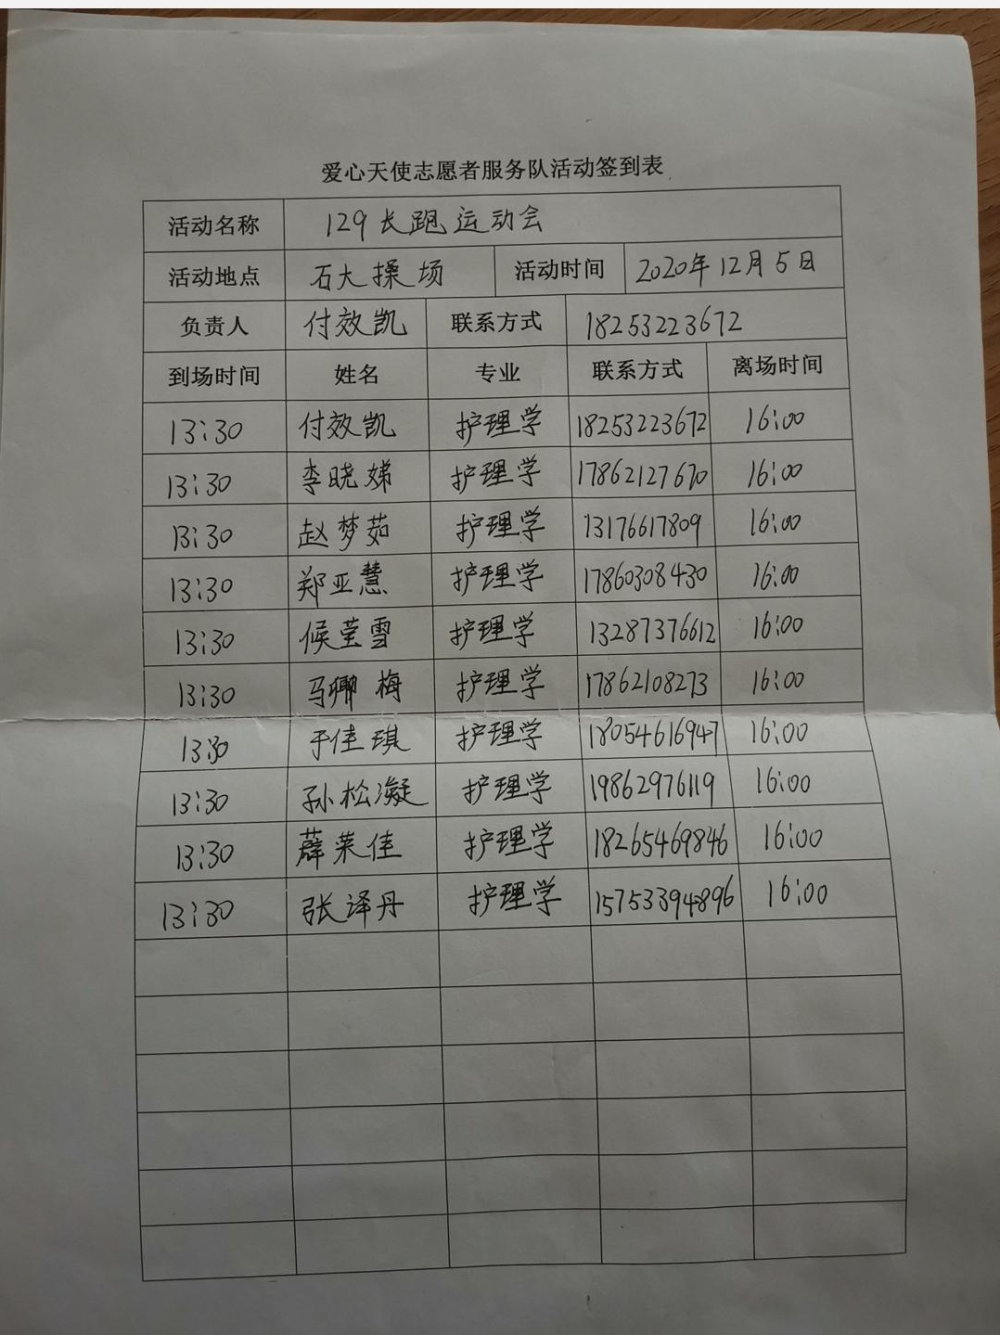 爱心天使志愿者服务队活动签到表
活动名称 129长跑运动会
活动地点 石大操场 活动时间 2020年12月5日
负责人 付效凯 联系方式 18253223672
到场时间 姓名 专业 联系方式 离场时间
13:30 付效凯 护理学 18253223672 16:00
13:30 李晓娣 护理学 17862127670 16:00
13:30 赵梦茹 护理学 13176617809 16:00
13:30 郑亚慧 护理学 17860308430 16:00
13:30 候莹雪 护理学 13287376612 16:00
13:30 马卿梅 护理学 17862108273 16:00
13:30 于佳琪 护理学 18054616947 16:00
13:30 孙松凝 护理学 19862976119 16:00
13:30 薛莱佳 护理学 18265469846 16:00
13:30 张译丹 护理学 157533948896 16:00